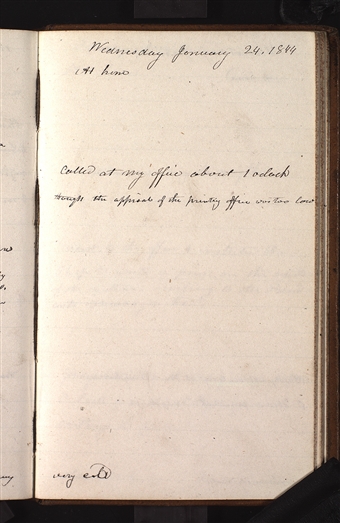 Wednesday January 24. 1844
At home
Called at my office about 1 oclock
the appraisal of the printing office was too low
very cold